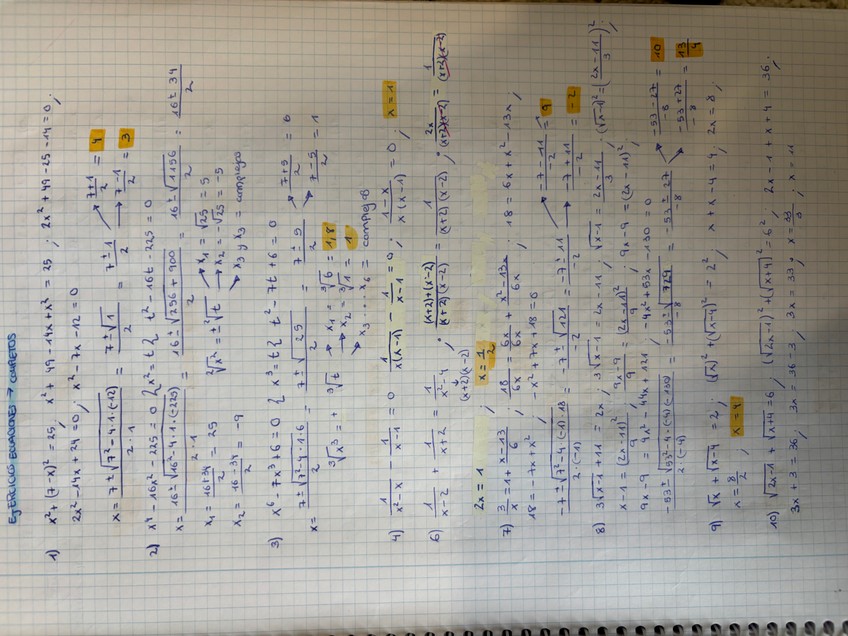 EJERCICIO ECUACIONES → COMPLETOS
1) x² + (7-x)² = 25 ; x² + 49 - 14x + x² = 25 ; 2x² + 49 - 25 - 14 = 0 ;
2x² - 14x + 24 = 0 ; x² - 7x - 12 = 0
x = 7 ± √7² - 4·1·(-12) / 2·1 = 7 ± √1 / 2 = 7 ± 1 / 2 ↗ 7+1 / 2 = 4
→ 7-1 / 2 = 3
2) x⁴ - 16x² - 225 = 0 { x² = t { t² - 16t - 225 = 0
x = 16 ± √16² - 4·1·(-225) / 2·1 = 16 ± √256 + 900 / 2 = 16 ± √1156 / 2 = 16 ± 34 / 2
x₁ = 16+34 / 2 = 25
x₂ = 16-34 / 2 = -9
²√x² = ± ²√t ↗ x₁ = √25 = 5
→ x₂ = -√25 = -5
↘ x₃ y x₃ = complejos
3) x⁶ - 7x³ + 6 = 0 { x³ = t { t² - 7t + 6 = 0
x = 7 ± √7² - 4·1·6 / 2 = 7 ± √25 / 2 = 7 ± 5 / 2 ↗ 7+5 / 2 = 6
↘ 7-5 / 2 = 1
³√x³ = + ³√t ↗ x₁ = ³√6 = 1,8
→ x₂ = ³√1 = 1
x₃ ... x₆ = complejos
4) 1 / x²-x - 1 / x-1 = 0 ; 1 / x(x-1) - 1 / x-1 = 0 ; 1-x / x(x-1) = 0 ; x = 1
6) 1 / x-2 + 1 / x+2 = 1 / x²-4 ; (x+2)+(x-2) / (x+2)(x-2) = 1 / (x+2)(x-2) ; 2x / (x+2)(x-2) = 1 / (x+2)(x-2)
(x+2)(x-2)
2x = 1 ; x = 1/2
7) 3 / x = 1 + x-13 / 6 ; 18 / 6x = 6x / 6x + x²-13x / 6x ; 18 = 6x + x² - 13x ;
18 = -7x + x² ; -x² + 7x + 18 = 0
-7 ± √7² - 4·(-1)·18 / 2·(-1) = -7 ± √121 / -2 = -7 ± 11 / -2 ↗ -7-11 / -2 = 9
→ -7+11 / -2 = -2
8) 3√x-1 + 11 = 2x ; 3√x-1 = 2x - 11 ; √x-1 = 2x-11 / 3 ; (√x-1)² = (2x-11 / 3)² ;
x-1 = (2x-11)² / 9 ; 9x-9 / 9 = (2x-11)² / 9 ; 9x-9 = (2x-11)² ;
9x-9 = 4x² - 44x + 121 ; -4x² + 53x - 130 = 0
-53 ± √53² - 4·(-4)·(-130) / 2·(-4) = -53 ± √729 / -8 = -53 ± 27 / -8 ↗ -53-27 / -8 = 10
↘ -53+27 / -8 = 13/4
9) √x + √x-4 = 2 ; (√x)² + (√x-4)² = 2² ; x + x - 4 = 4 ; 2x = 8 ;
x = 8/2 ; x = 4
10) √2x-1 + √x+4 = 6 ; (√2x-1)² + (√x+4)² = 6² ; 2x - 1 + x + 4 = 36 ;
3x + 3 = 36 ; 3x = 36 - 3 ; 3x = 33 ; x = 33/3 ; x = 11